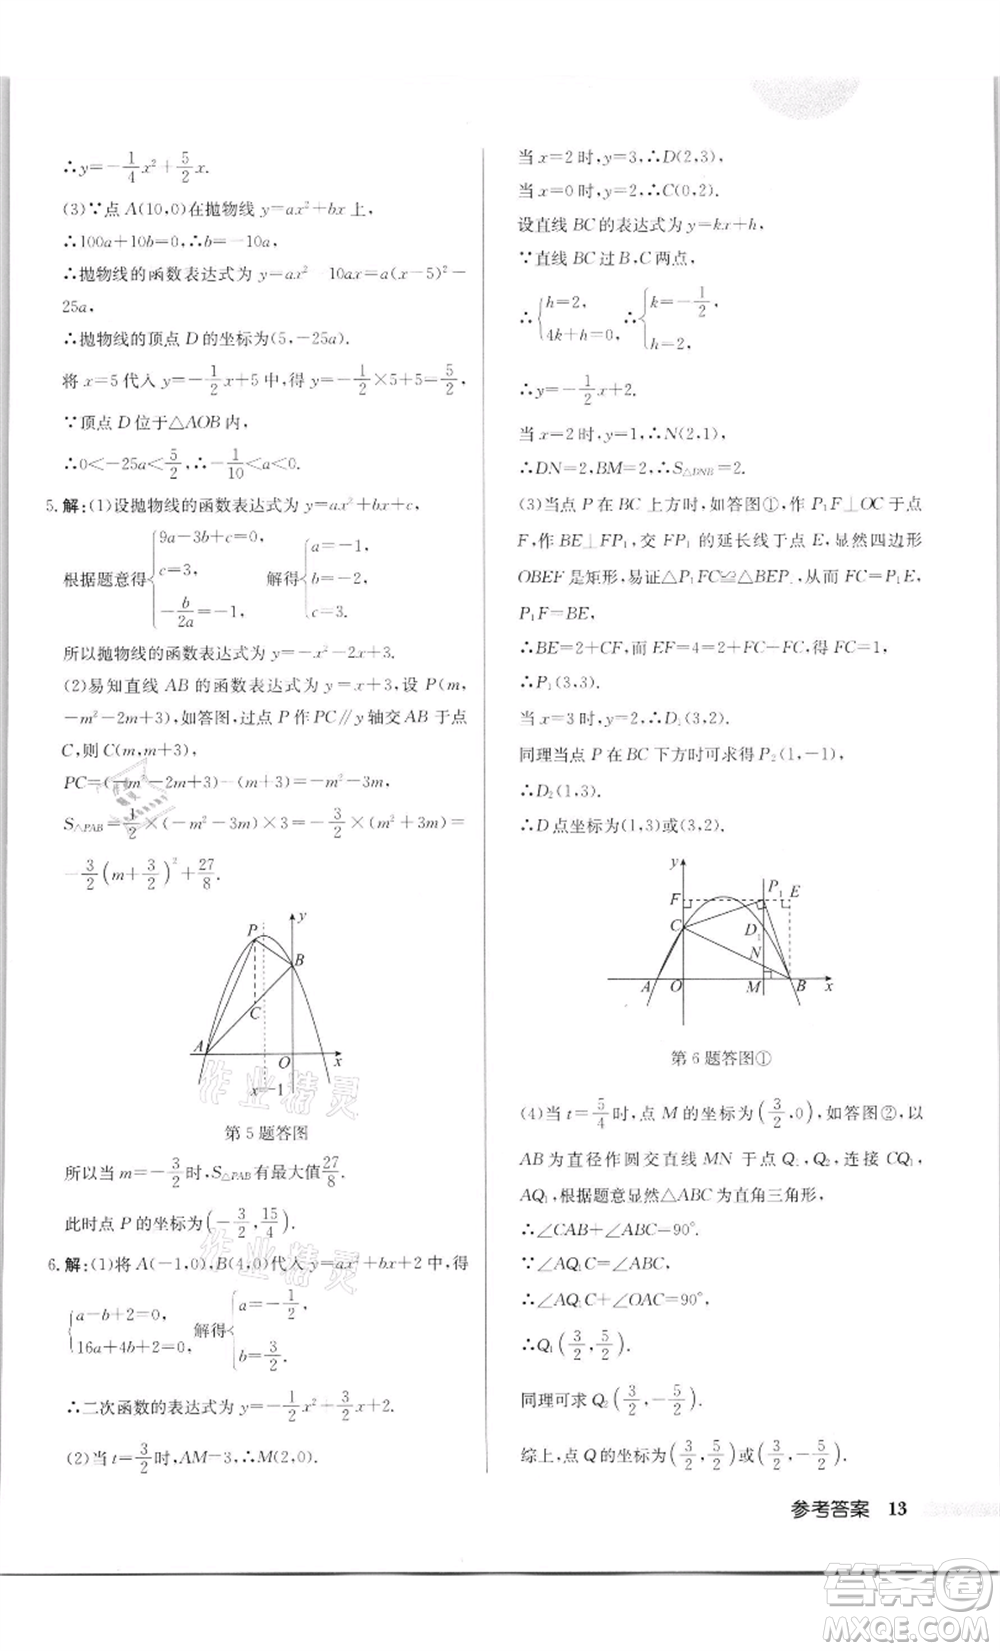 ∴y=-1/4x²+5/2x.
(3)∵点A(10,0)在抛物线y=ax²+bx上,
∴100a+10b=0,∴b=-10a.
∴抛物线的函数表达式为y=ax²-10ax=a(x-5)²-
25a,
∴抛物线的顶点D的坐标为(5,-25a).
将x=5代入y=-1/2x+5中,得y=-1/2×5+5=5/2.
∵顶点D位于△AOB内,
∴0<-25a<5/2,∴-1/10<a<0.
5.解:(1)设抛物线的函数表达式为y=ax²+bx+c,
根据题意得{9a-3b+c=0, c=3, -b/2a=-1, 解得{a=-1, b=-2, c=3.
所以抛物线的函数表达式为y=-x²-2x+3.
(2)易知直线AB的函数表达式为y=x+3,设P(m,
-m²-2m+3),如答图,过点P作PC∥y轴交AB于点
C,则C(m,m+3),
PC=(-m²-2m+3)-(m+3)=-m²-3m.
S△PAB=1/2×(-m²-3m)×3=-3/2×(m²+3m)=
-3/2(m+3/2)²+27/8.
y
P
B
C
A
O
x
x=-1
第5题答图
所以当m=-3/2时,S△PAB有最大值27/8.
此时点P的坐标为(-3/2,15/4).
6.解:(1)将A(-1,0),B(4,0)代入y=ax²+bx+2中,得
{a-b+2=0, 16a+4b+2=0, 解得{a=-1/2, b=3/2.
∴二次函数的表达式为y=-1/2x²+3/2x+2.
(2)当t=3/2时,AM=3,∴M(2,0).
当x=2时,y=3,∴D(2,3),
当x=0时,y=2,∴C(0,2).
设直线BC的表达式为y=kx+h,
∵直线BC过B,C两点,
∴{h=2, 4k+h=0, ∴{k=-1/2, h=2,
∴y=-1/2x+2.
当x=2时,y=1,∴N(2,1),
∴DN=2,BM=2,∴S△DNB=2.
(3)当点P在BC上方时,如答图①,作P₁F⊥OC于点
F,作BE⊥FP₁,交FP₁的延长线于点E,显然四边形
OBEF是矩形,易证△P₁FC≌△BEP₁,从而FC=P₁E,
P₁F=BE,
∴BE=2+CF,而EF=4=2+FC+FC,得FC=1,
∴P₁(3,3).
当x=3时,y=2,∴D₁(3,2).
同理当点P在BC下方时可求得P₂(1,-1),
∴D₂(1,3).
∴D点坐标为(1,3)或(3,2).
y
F
P₁
E
C
D₁
N
A
O
M
B
x
第6题答图①
(4)当t=5/4时,点M的坐标为(3/2,0),如答图②,以
AB为直径作圆交直线MN于点Q₁,Q₂,连接CQ₁,
AQ₁,根据题意显然△AQ₁B为直角三角形,
∴∠CAB+∠ACO=90°,
∴∠AQ₁C+∠ACO=90°,
∴∠AQ₁C+∠OAC=90°,
∴Q₁(3/2,5/2).
同理可求Q₂(3/2,-5/2).
综上,点Q的坐标为(3/2,5/2)或(3/2,-5/2).
参考答案 13
作业精灵
作业精灵
答案圈
MXQE.COM